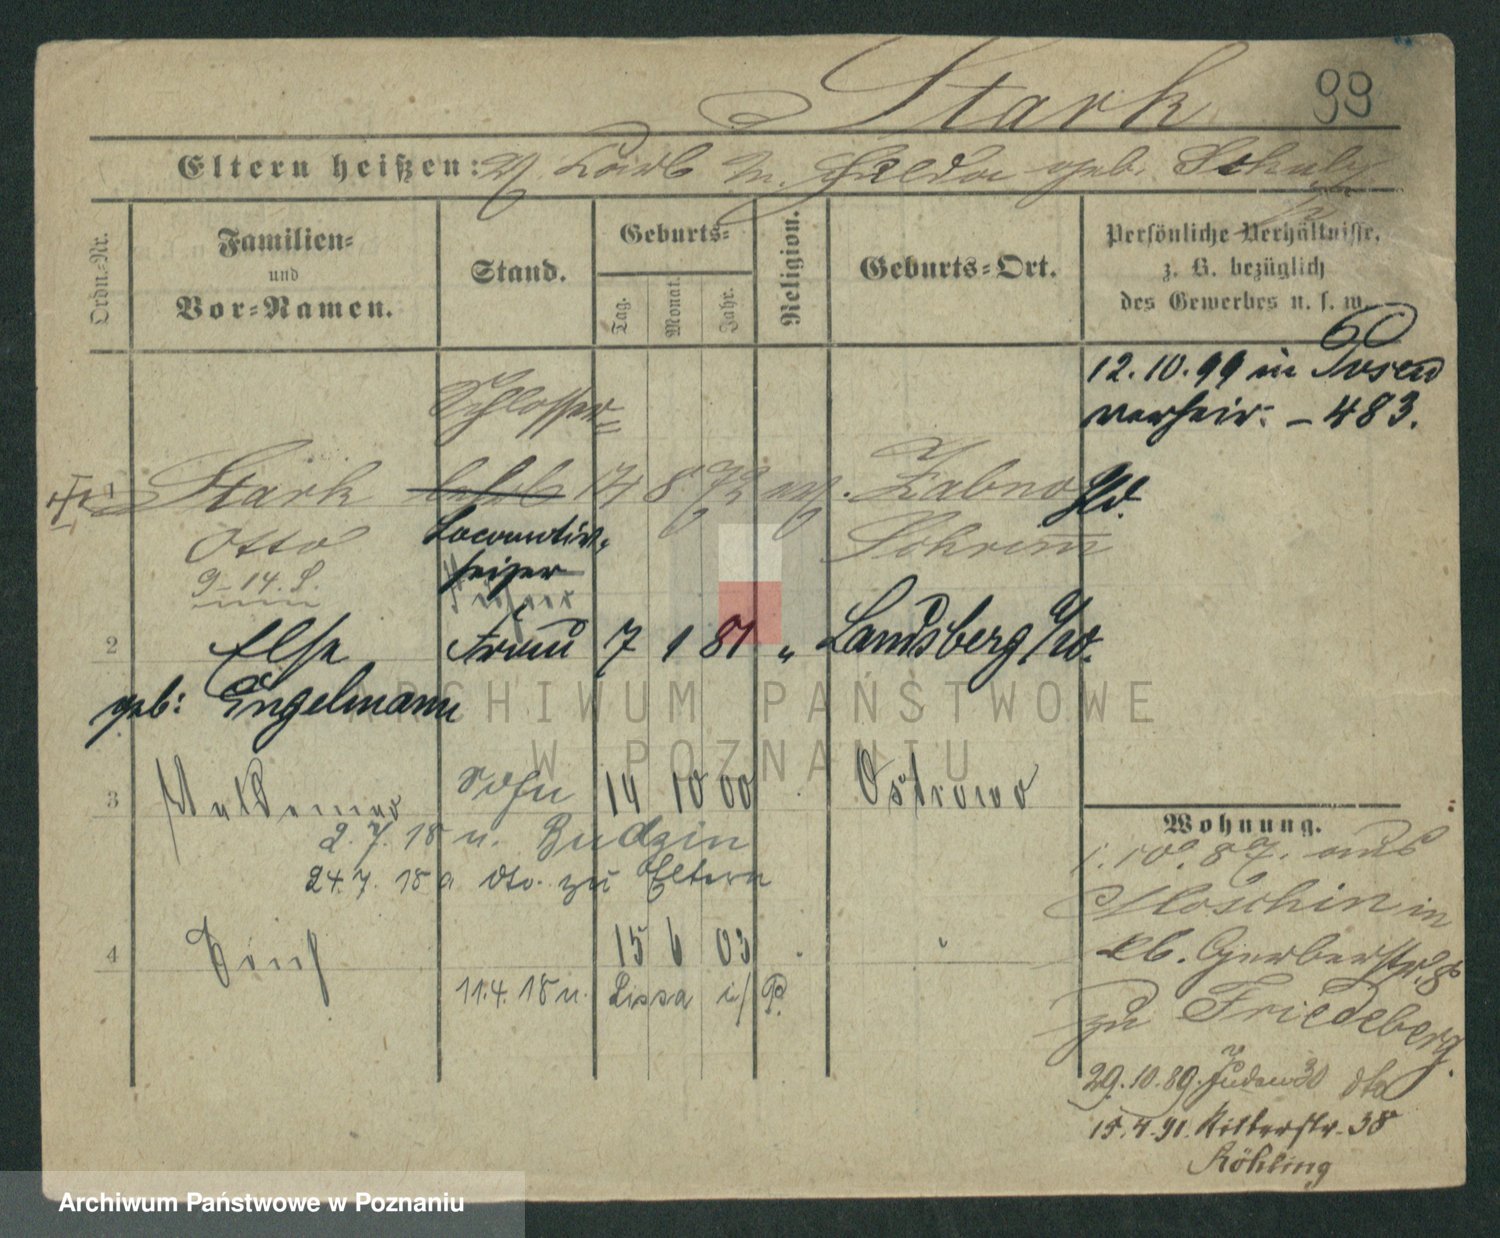 Stark 99
Eltern heißen: V. M. Hulda geb. Schulz
Ordn=Nr.
Familien=
und
Vor=Namen.
Stand.
Geburts=
Tag.
Monat.
Jahr.
Religion.
Geburts=Ort.
Persönliche Verhältnisse,
z. B. bezüglich
des Gewerbes u. s. w.
60
12.10.99 in Posen
verheir. – 483.
Schlosser=
1 Stark lehrl 14 8 72 ev. Zabno
Otto Locomotiv- Schrimm
9-14. S. heizer
2 Else Frau 7 1 81 " Landsberg a/W.
geb: Engelmann
3 Waldemar Sohn 14 10 00 Ostrowo
2.7.18 n. Budzin
24.7.18 a dto. zu Eltern
4 15 6 03 "
11.4.18 n. Lissa i/P.
Wohnung.
1.10.87. aus
Moschin in
Gerberstr.
zu Friedeberg.
29.10.89. Juden 30 dto
15.4.91. Ritterstr. 38
Röhling
ARCHIWUM PAŃSTWOWE
W POZNANIU
Archiwum Państwowe w Poznaniu